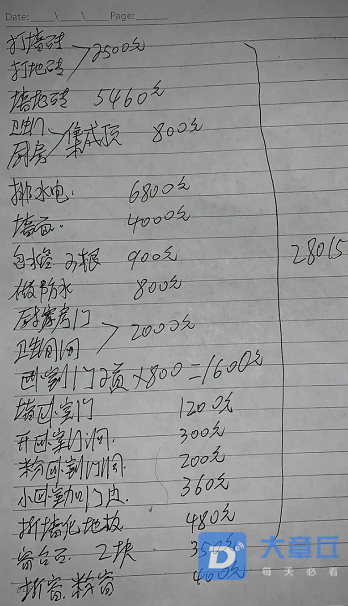 Date: Page:
打墙砖
打地砖 >2500元
墙地砖 5460元
卫生间
厨房 >集成顶 800元
排水电. 6800元
墙面. 4000元
包水管 3根 900元
做防水 800元
房门
卫生间 >2000元
卧室门2页×800=1600元
墙卧室门 1200元
开卧室门洞. 300元
粉卧室门洞. 200元
小卧室加门皮. 360元
拆墙化地板 480元
窗台石. 2块 350元
拆窗.粉窗 460元
28015
大章丘
每天必看